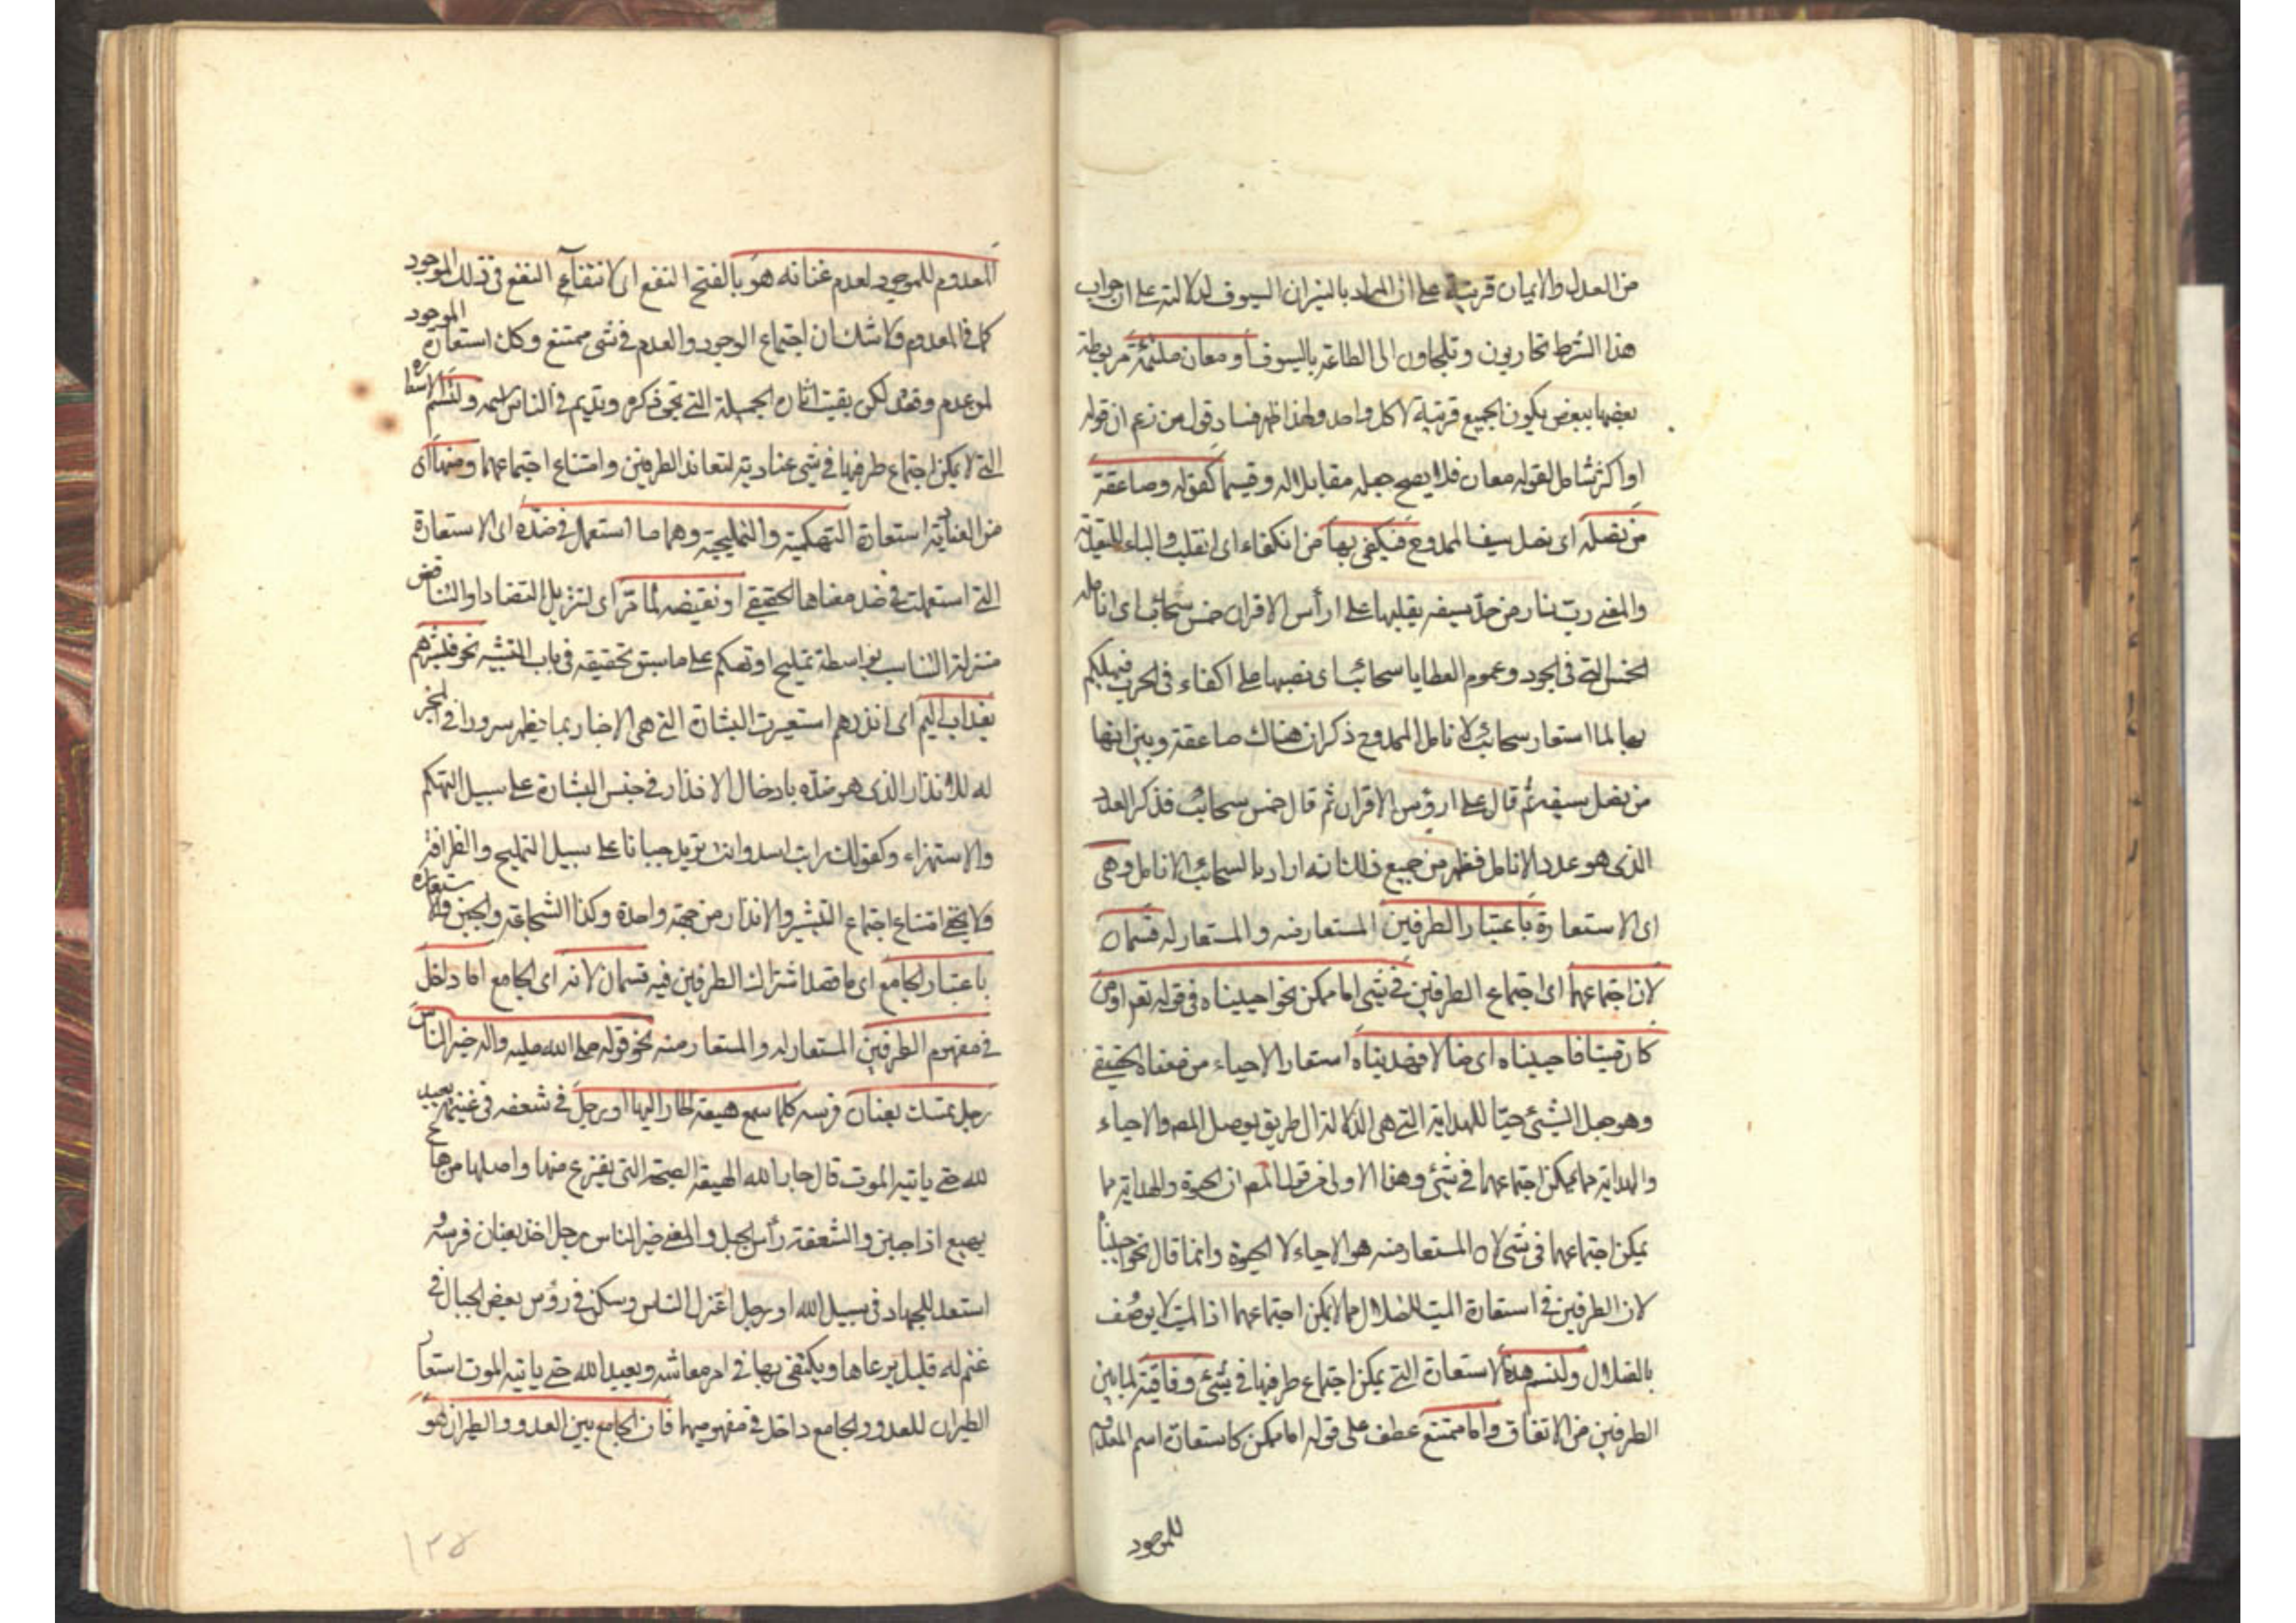 من العدل والايمان قرينة على ان المراد بالنيران السيوف لدلالته على ان جواب
هذا الشرط تحاربون وتلجاون الى الطاعة بالسيوف او معان ملتئمة مربوطة
بعضها ببعض يكون الجميع قرينة لا كل واحد ولهذا ظهر فساد قول من زعم ان قوله
او اكثر شامل لقوله معان فلا يصح جعله مقابلا له وقسيما كقوله وصاعقة
من نصله اى نصل سيف الممدوح تنكفى بها من انكفاء اى انقلب والباء للتعدية
والمعنى رب نار من حد سيفه يقلبها على ارأس الاقران خمس سحائب اى انامله
الخمس التى فى الجود وعموم العطايا سحائب اى نصبها على اكفاء فى الحرب فيهلكهم
بها لما استعار سحائب لانامل الممدوح ذكر ان هناك صاعقة وبين انها
من نصل سيفه ثم قال على ارؤس الاقران ثم قال خمس سحائب فذكر العدد
الذى هو عدد الانامل فظهر من جميع ذلك انه اراد بالسحائب الانامل وهى
اى الاستعارة باعتبار الطرفين المستعار منه والمستعار له قسمان
لان اجتماعهما اى اجتماع الطرفين فى شئ اما ممكن نحو احييناه فى قوله تعم او من
كان ميتا فاحييناه اى ضالا فهديناه استعار الاحياء من معناه الحقيقى
وهو جعل الشئ حيا للهداية التى هى الدلالة الى طريق يوصل الى المط والاحياء
والهداية مما يمكن اجتماعهما فى شئ وهذا اولى من قول المص ان الحيوة والهداية مما
يمكن اجتماعهما فى شئ لان المستعار منه هو الاحياء لا الحيوة وانما قال نحو احييناه
لان الطرفين فى استعارة الميت للضلال مما لا يمكن اجتماعهما اذ الميت لا يوصف
بالضلال ولتسم هذه الاستعارة التى يمكن اجتماع طرفيها فى شئ وفاقية لما بين
الطرفين من الاتفاق واما ممتنع عطف على قوله اما ممكن كاستعارة اسم المعدوم
للموجود
المعدوم للموجود لعدم غنائه هو بالفتح النفع اى لانتفاء النفع فى ذلك الموجود
كما فى المعدوم ولا شك ان اجتماع الوجود والعدم فى شئ ممتنع وكك استعارة الموجود
لمن عدم وفقد لكن بقيت اثاره الجميلة التى تحيى ذكره وتديم فى الناس اسمه ولتسم الاستعارة
التى لا يمكن اجتماع طرفيها فى شئ عنادية لتعاند الطرفين وامتناع اجتماعهما ومنها اى
من العنادية استعارة التهكمية والتمليحية وهما ما استعمل فى ضده اى الاستعارة
التى استعملت فى ضد معناها الحقيقى او نقيضه لما مر اى لتنزيل التضاد او التناقض
منزلة التناسب بواسطة تمليح او تهكم على ما سبق تحقيقه فى باب التشبيه نحو فبشرهم
بعذاب اليم اى انذرهم استعيرت البشارة التى هى الاخبار بما يظهر سرورا فى المخبر
له للانذار الذى هو ضده بادخال الانذار فى جنس البشارة على سبيل التهكم
والاستهزاء وكقولك رايت اسدا وانت تريد جبانا على سبيل التمليح والظرافة
ولا يخفى امتناع اجتماع التبشير والانذار من جهة واحدة وكذا الشجاعة والجبن والاستعارة
باعتبار الجامع اى ما قصد اشتراك الطرفين فيه قسمان لانه اى الجامع اما داخل
فى مفهوم الطرفين المستعار له والمستعار منه نحو قوله صلى الله عليه واله خير الناس
رجل يمسك بعنان فرسه كلما سمع هيعة طار اليها او رجل فى شعفه فى غنيمة يعبد
الله حتى ياتيه الموت قال جار الله الهيعة الصيحة التى يفزع منها واصلها من هاع
يهيع اذا جبن والشعفة رأس الجبل والمعنى خير الناس رجل اخذ بعنان فرسه و
استعد للجهاد فى سبيل الله او رجل اعتزل الناس وسكن فى رؤس بعض الجبال فى
غنم له قليل يرعاها ويكتفى بها فى امر معاشه ويعبد الله حتى ياتيه الموت استعار
الطيران للعدو والجامع داخل فى مفهوميهما فان الجامع بين العدو والطيران هو